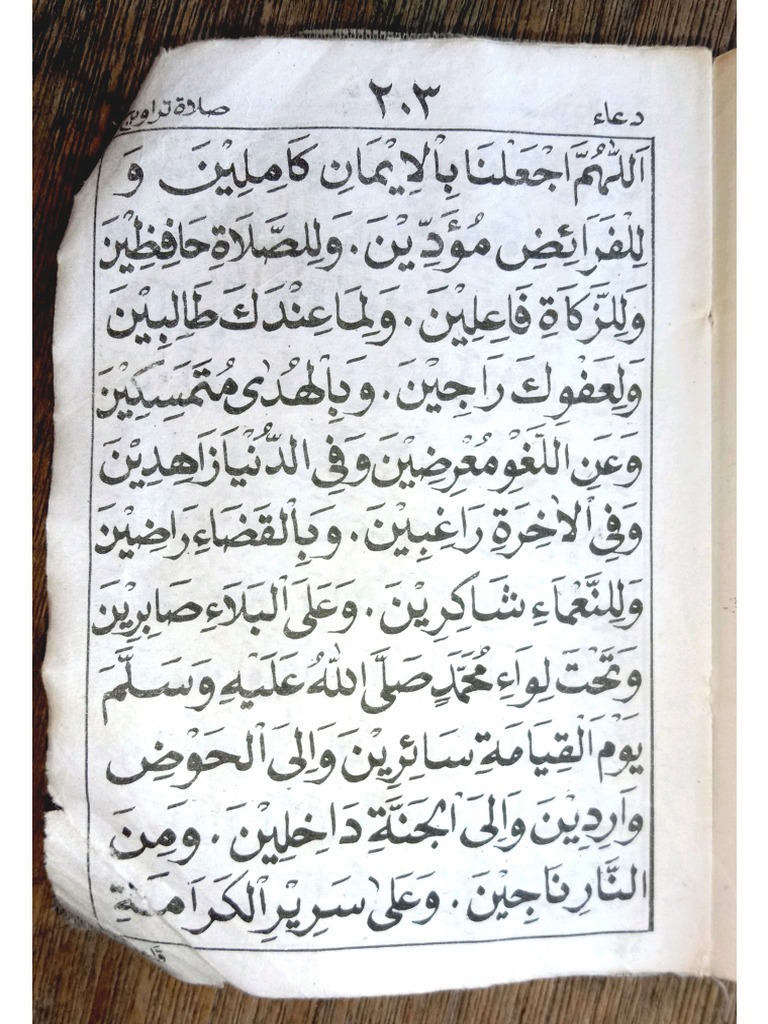 دعاء ٢٠٣ صلاة تراويح
اَللّٰهُمَّ اجْعَلْنَا بِاْلاِيْمَانِ كَامِلِيْنَ وَ
لِلْفَرَائِضِ مُؤَدِّيْنَ. وَلِلصَّلَاةِ حَافِظِيْنَ
وَلِلزَّكَاةِ فَاعِلِيْنَ. وَلِمَا عِنْدَكَ طَالِبِيْنَ
وَلِعَفْوِكَ رَاجِيْنَ. وَبِالْهُدٰى مُتَمَسِكِيْنَ
وَعَنِ اللَّغْوِ مُعْرِضِيْنَ وَفِى الدُّنْيَا زَاهِدِيْنَ
وَفِى اْلاٰخِرَةِ رَاغِبِيْنَ. وَبِالْقَضَاءِ رَاضِيْنَ
وَلِلنَّعْمَاءِ شَاكِرِيْنَ. وَعَلَى الْبَلَاءِ صَابِرِيْنَ
وَتَحْتَ لِوَاءِ مُحَمَّدٍ صَلَّى اللّٰهُ عَلَيْهِ وَسَلَّمَ
يَوْمَ الْقِيَامَةِ سَائِرِيْنَ وَاِلَى الْحَوْضِ
وَارِدِيْنَ وَاِلَى الْجَنَّةِ دَاخِلِيْنَ. وَمِنَ
النَّارِ نَاجِيْنَ. وَعَلٰى سَرِيْرِ الْكَرَامَةِ